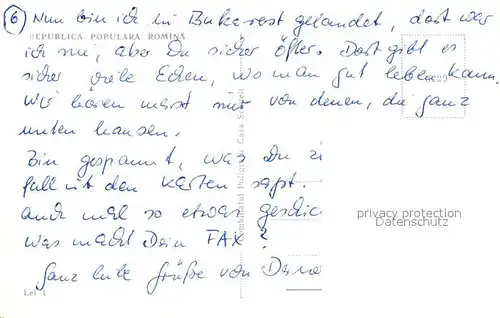 ⑥ Nun bin ich in Bukarest gelandet, dort war
REPUBLICA POPULARA ROMINA
ich nie, aber Du sicher öfter. Dort gibt es
sicher viele Ecken, wo man gut leben kann.
Wir hören meist nur von denen, die ganz
unten hausen.
Bin gespannt, was Du zi
fall mit den Karten sagst.
auch mal so etwas geschic
was macht Dein FAX?
Ganz liebe Grüße von
Combinatul Poligrafic Casa Scînteii
privacy protection
Datenschutz
Lei 1